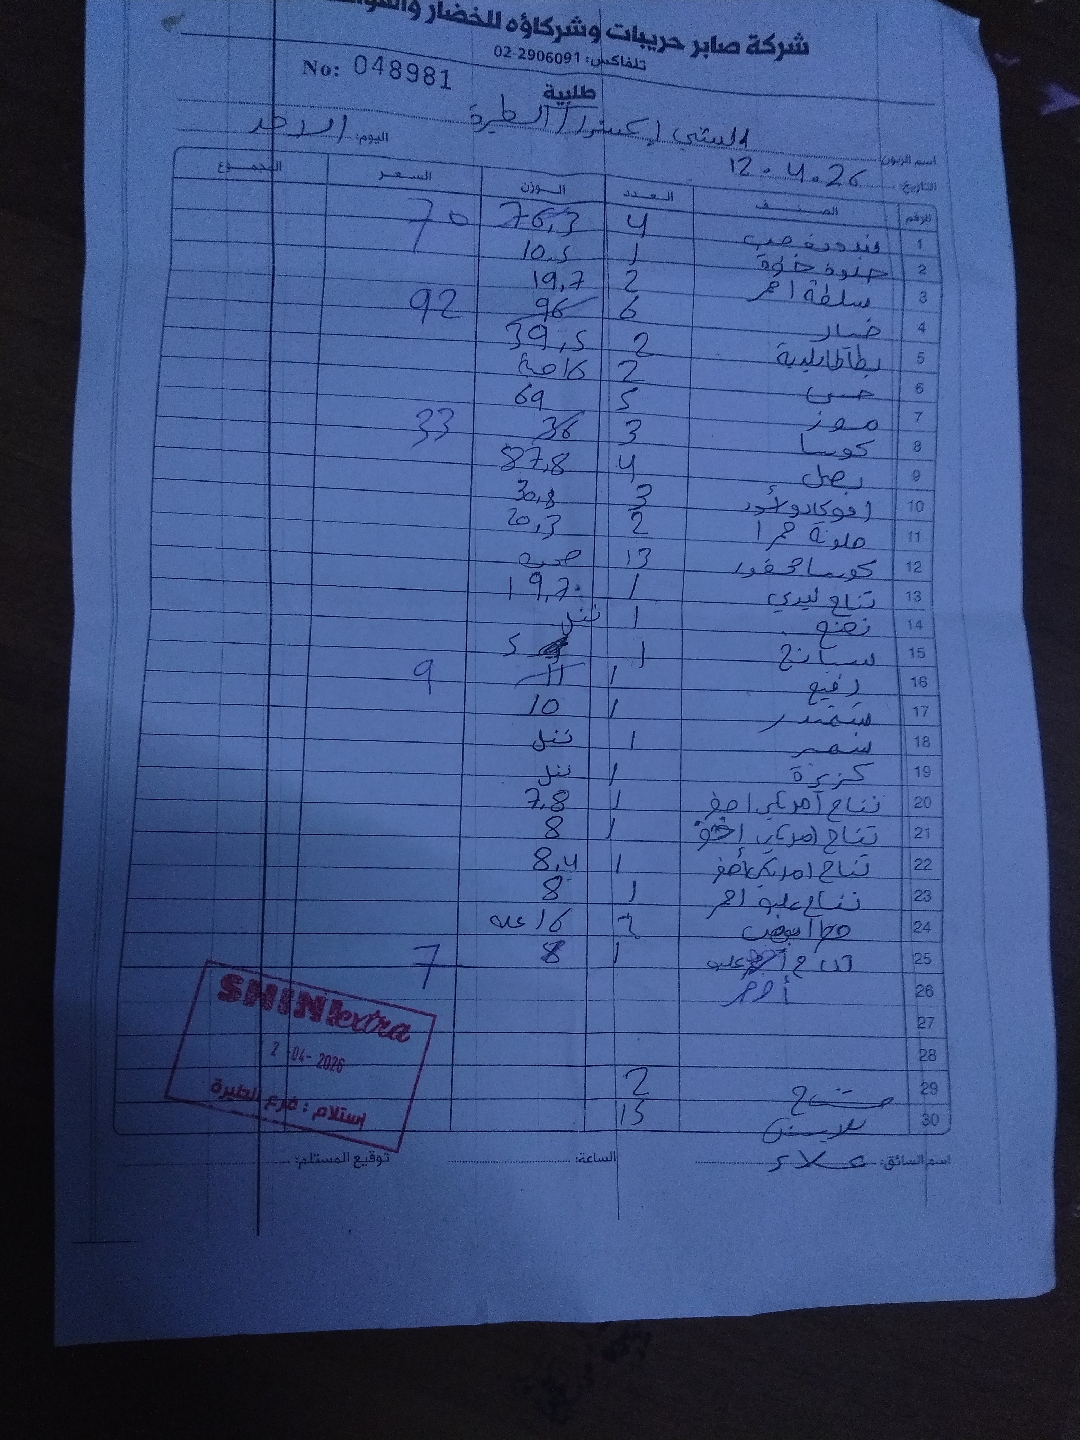 شركة صابر حريبات وشركاؤه للخضار
تلفاكس: 02-2906091
No: 048981
طلبية
اسم الزبون: إكسترا / الطيرة
اليوم: الاحد
التاريخ: 12.4.26
الرقم الصنف العدد الوزن السعر المجموع
1 بندورة حب 4 76,3 70
2 حلوة 1 10.5
3 سلطة احمر 2 19,7
4 خيار 6 96 92
5 بطاطا 2 39,5
6 خس 2
7 موز 5 69
8 كوسا 3 36 33
9 بصل 4 87,8
10 افوكادو 3 30,8
11 ملونة حمرا 2 20,3
12 كوسا محفور 13
13 تفاح ليدي 1 19,70
14 نعنع 1
15 سبانخ 1 5
16 رفيع 1 11 9
17 شمندر 1 10
18 شمر 1
19 كزبرة 1
20 تفاح امريكي اصفر 1 7,8
21 تفاح امريكي اخضر 1 8
22 تفاح امريكي اصفر 1 8,4
23 تفاح علبة احمر 1 8
24 16 علبة
25 تفاح علبة 1 8 7
26 أحمر
27
28
29 مشتاح 2
30 15
اسم السائق: علاء الساعة: توقيع المستلم:
SHINI extra
2-04-2026
استلام: فرع الطيرة